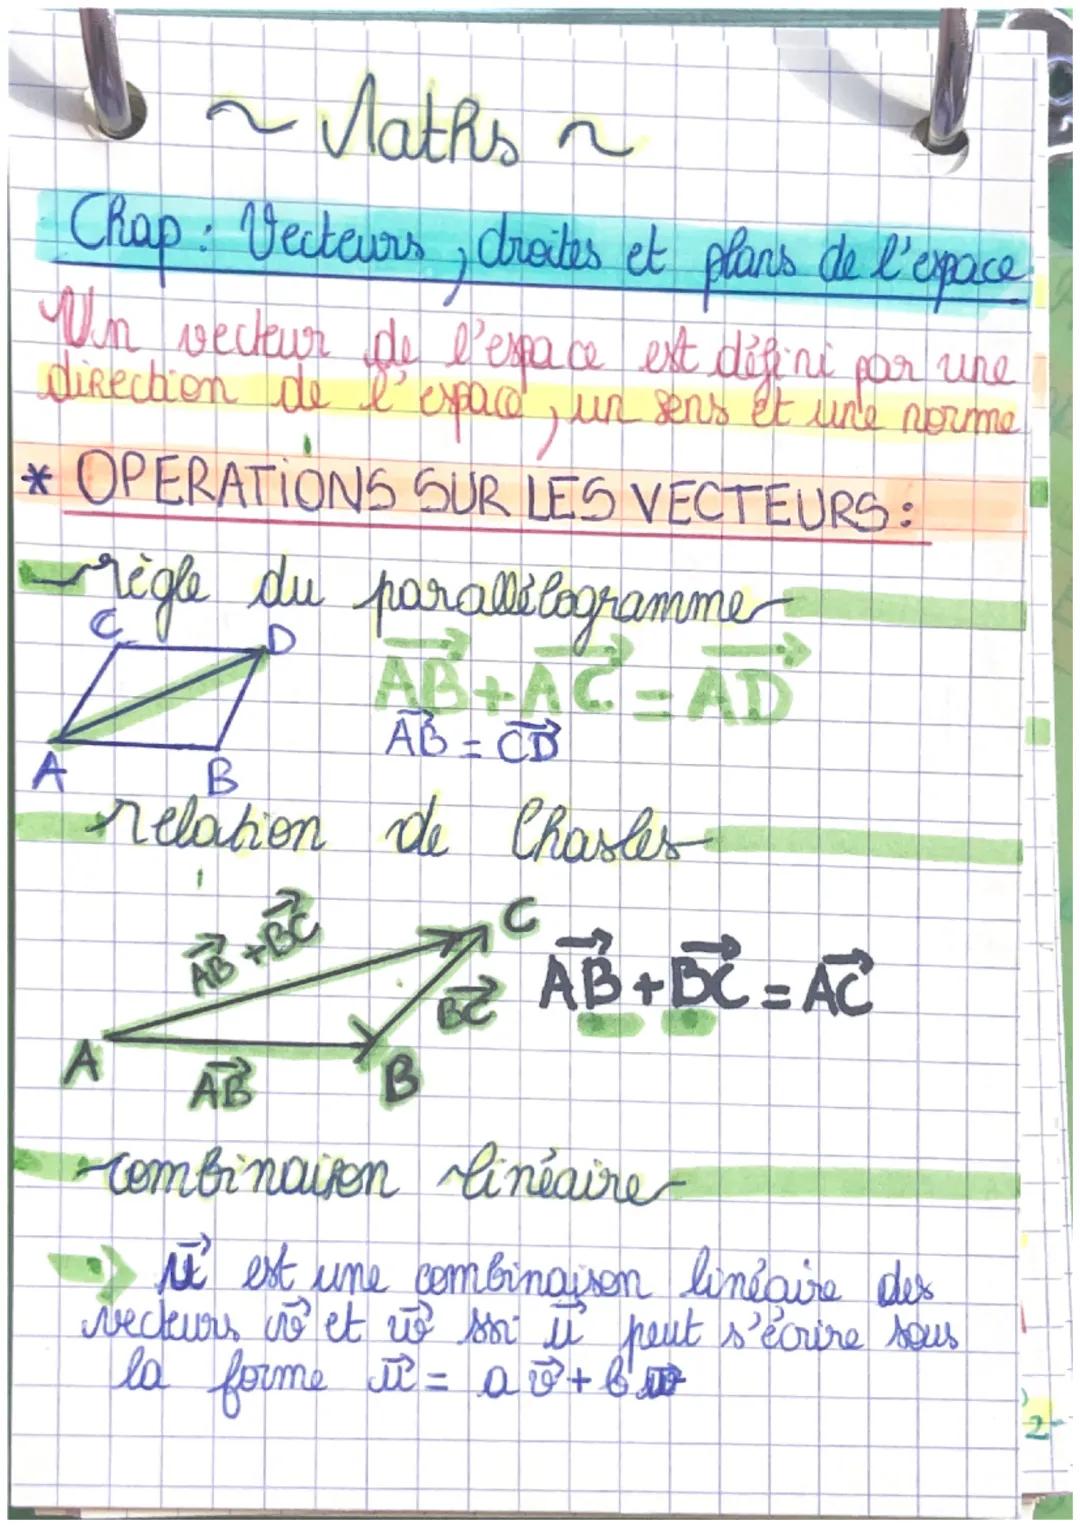 ~ Maths ~
Chap : Vecteurs, droites et plans de l'espace
Un vecteur de l'espace est défini par une
direction de l'espace, un sens et une norme
* OPERATIONS SUR LES VECTEURS :
règle du parallélogramme
C D
A B
AB + AC = AD
AB = CD
relation de Chasles
AB + BC
C
BC
A
AB
B
AB + BC = AC
combinaison linéaire
u est une combinaison linéaire des
vecteurs v et w ssi u peut s'écrire sous
la forme u = a v + b w
2